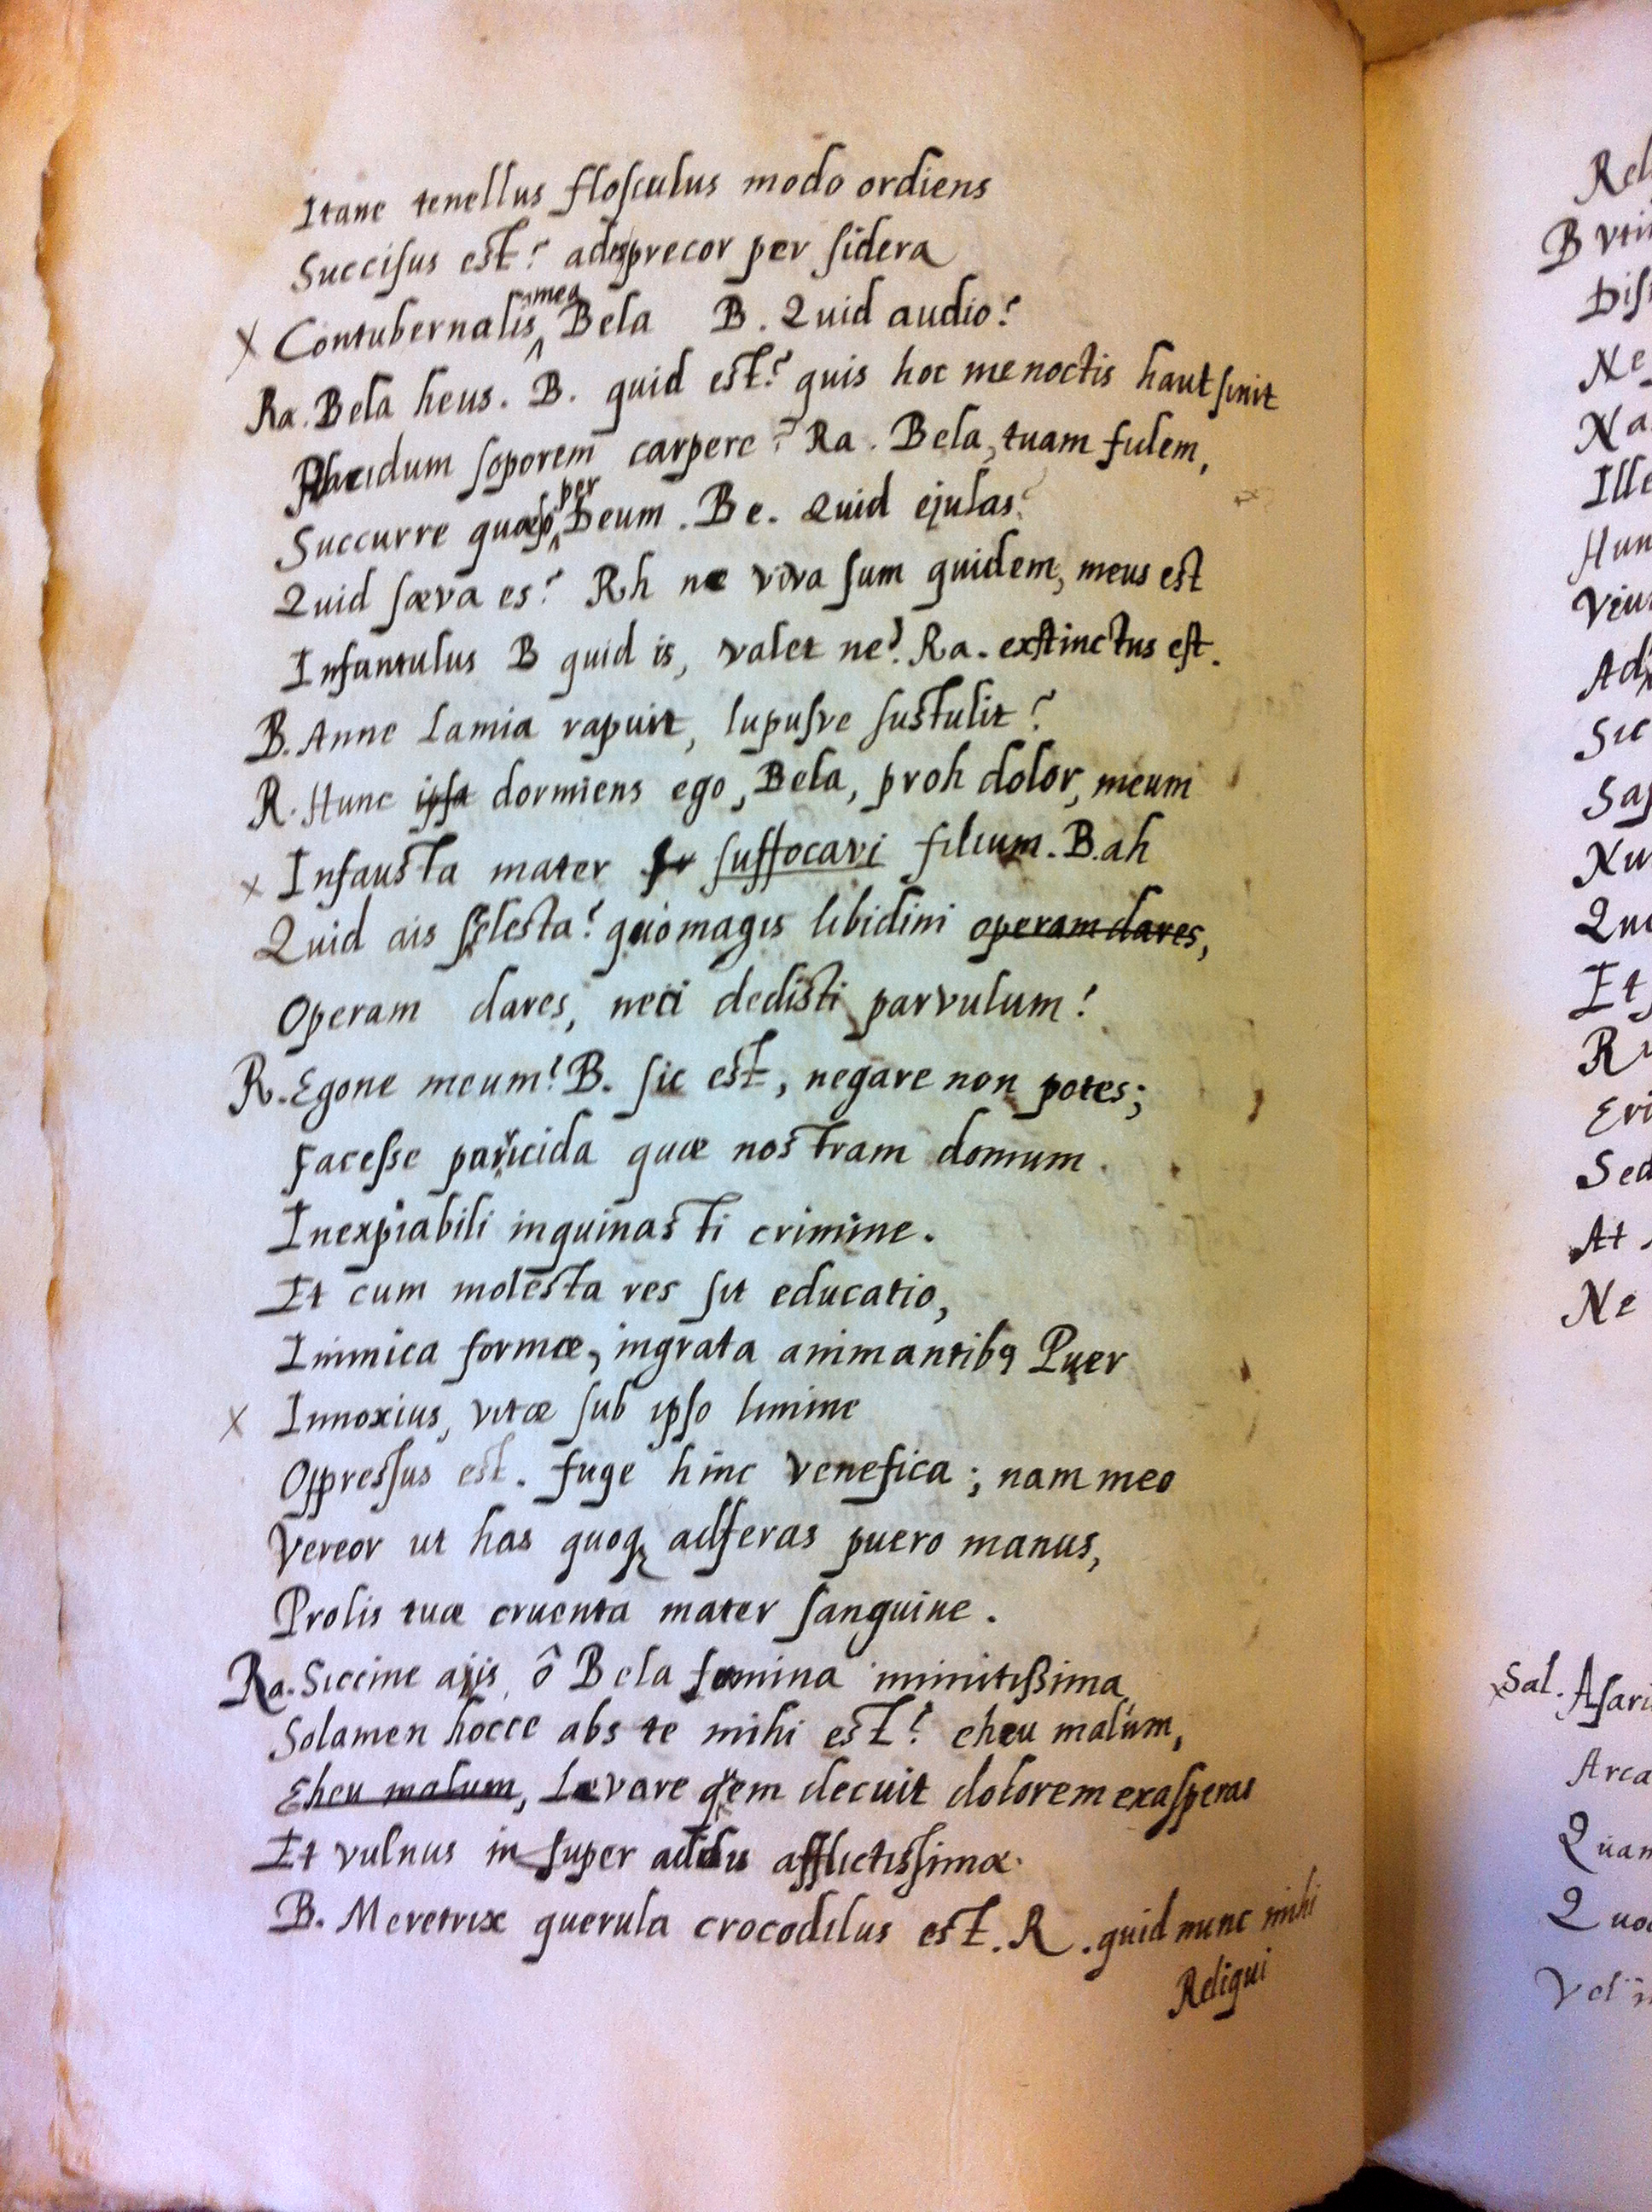 Itane tenellus flosculus modo ordiens
Succisus est? ades precor per sidera
Contubernalis mea Bela B. Quid audio?
Ra. Bela heus. B. quid est? quis hoc me noctis haut sinit
Placidum soporem carpere? Ra. Bela, tuam fidem,
Succurre quæso per Deum. Be. Quid ejulas?
Quid sæva es? Rh ne viva sum quidem, meus est
Infantulus B quid is, valet ne? Ra. exstinctus est.
B. Anne Lamia rapuit, lupusve sustulit?
R. Hunc ipsa dormiens ego, Bela, proh dolor, meum
Infausta mater suffocavi filium. B. ah
Quid ais scelesta? quo magis libidini operam dares,
Operam dares, neci dedisti parvulum!
R. Egone meum! B. sic est, negare non potes;
Facesse paricida quæ nostram domum
Inexpiabili inquinasti crimine.
Et cum molesta res sit educatio,
Inimica formæ, ingrata animantibꝰ Puer
Innoxius, vitæ sub ipso limine
Oppressus est. fuge hinc venefica; nam meo
Vereor ut has quoqꝫ adferas puero manus,
Prolis tuæ cruenta mater sanguine.
Ra. Siccine ajis, ô Bela fæmina immitissima
Solamen hocce abs te mihi est? eheu malum,
Eheu malum, Levare quem decuit dolorem exasperas
Et vulnus in super addis afflictissimæ.
B. Meretrix querula crocodilus est. R. quid nunc mihi
Reliqui
B
Ne
Et
Ne
Sal.